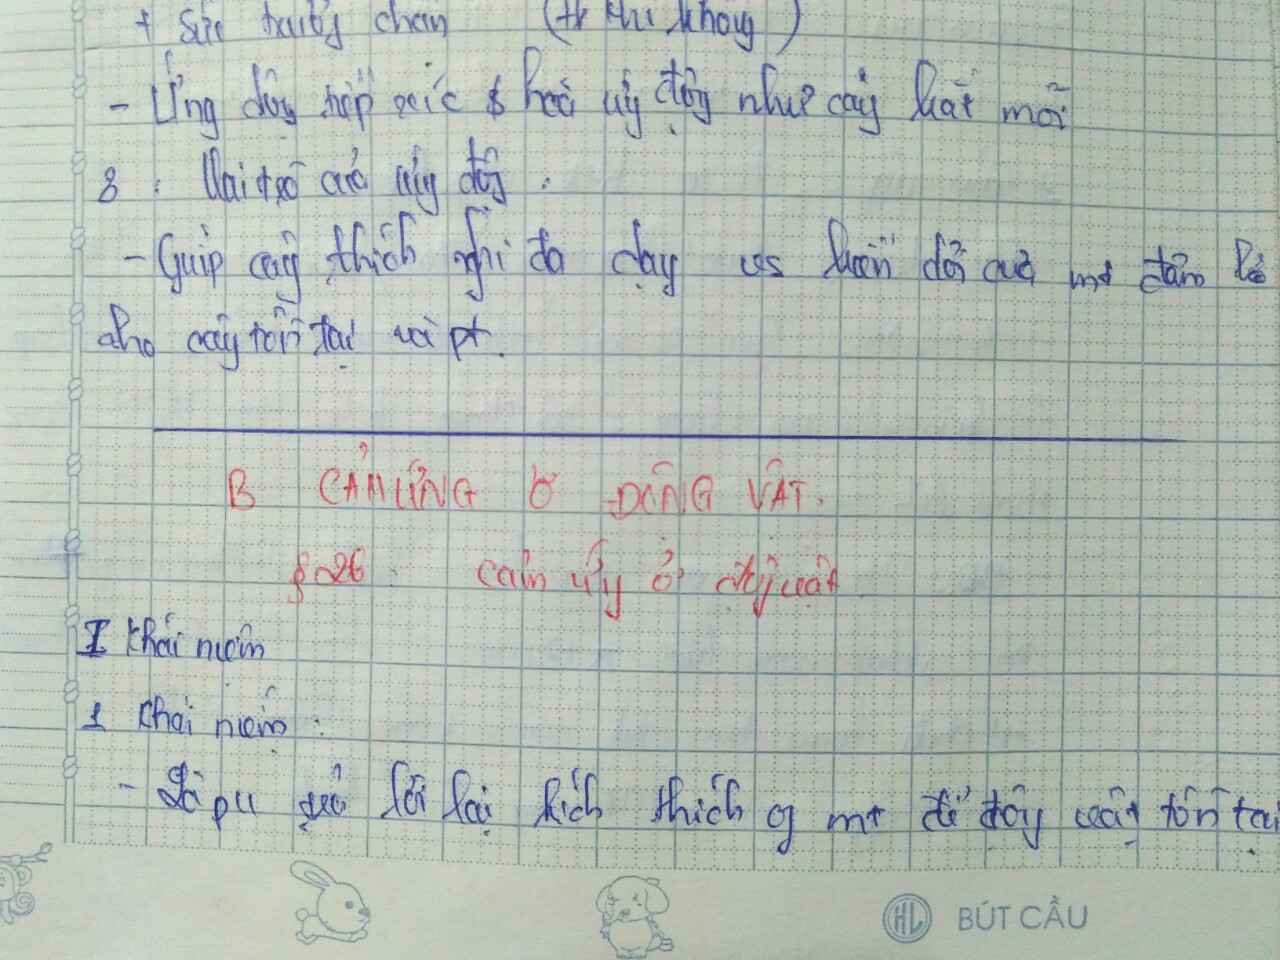 + Sức trương (tr khí khổng)
- Ứng động tiếp xúc & hoá ứng động như cây bắt mồi
3. Vai trò của ứng động.
- Giúp cây thích nghi đa dạng vs biến đổi của mt đảm bảo
cho cây tồn tại và pt.
B CẢM ỨNG Ở ĐỘNG VẬT.
§ 26. cảm ứng ở động vật
I Khái niệm
1 Khái niệm:
- Là pư trả lời lại kích thích of mt để động vật tồn tại
HL BÚT CẦU